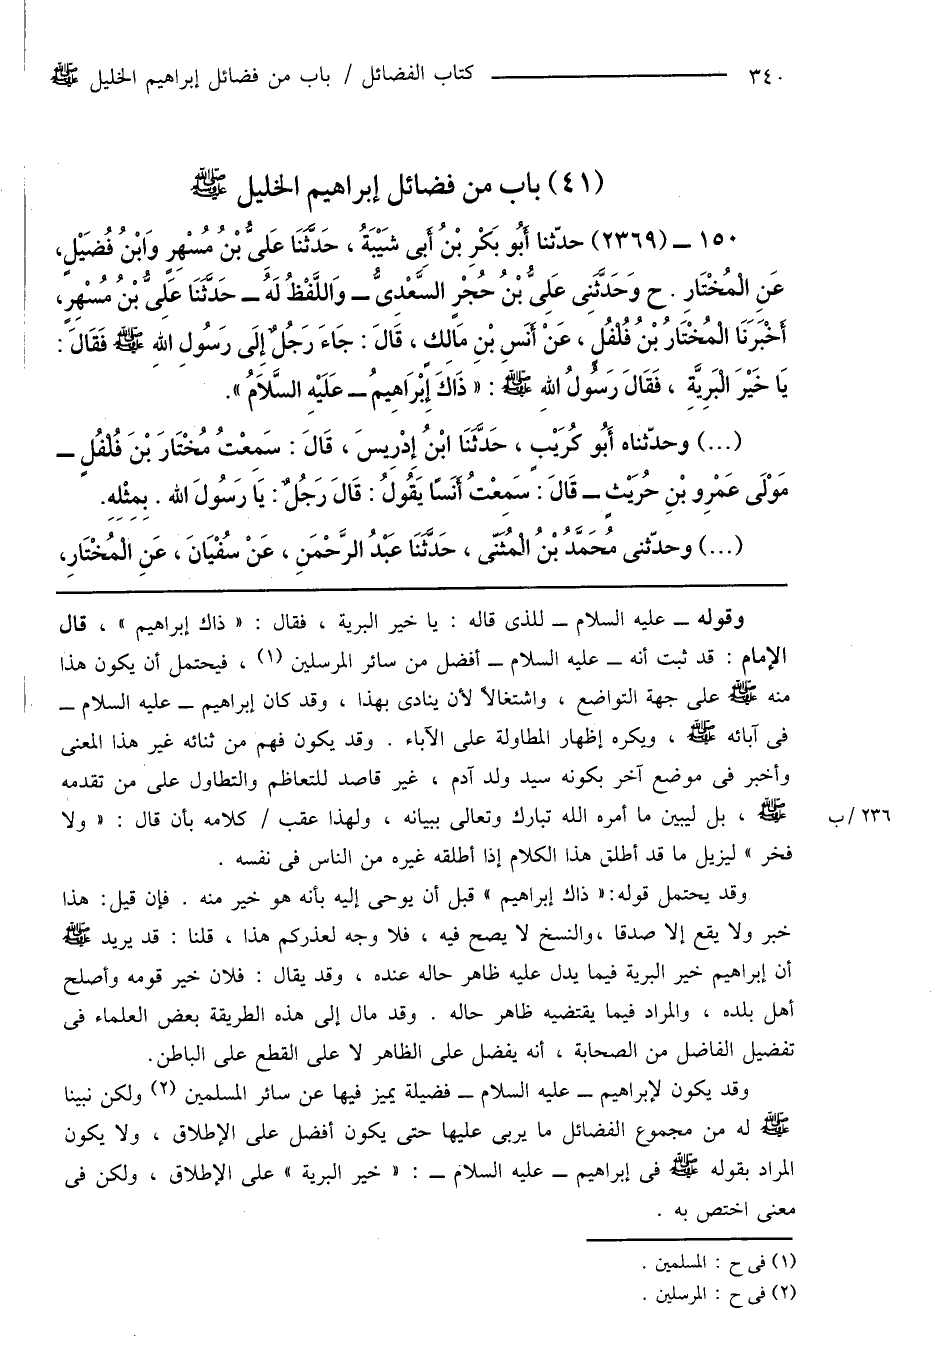 ٣٤٠ ـــــــــ كتاب الفضائل / باب من فضائل إبراهيم الخليل ﷺ
(٤١) باب من فضائل إبراهيم الخليل ﷺ
١٥٠ ـ (٢٣٦٩) حدّثنا أَبُو بَكْرِ بْنُ أَبِى شَيْبَةَ ، حَدَّثَنَا عَلِىُّ بْنُ مُسْهِرٍ وَابْنُ فُضَيْلٍ،
عَنِ الْمُخْتَارِ . ح وَحَدَّثَنِى عَلِىُّ بْنُ حُجْرٍ السَّعْدِىُّ ـ وَاللَّفْظُ لَهُ ـ حَدَّثَنَا عَلِىُّ بْنُ مُسْهِرٍ،
أَخْبَرَنَا الْمُخْتَارُ بْنُ فُلْفُلٍ ، عَنْ أَنَسِ بْنِ مَالِكٍ ، قَالَ : جَاءَ رَجُلٌ إِلَى رَسُولِ اللهِ ﷺ فَقَالَ :
يَا خَيْرَ الْبَرِيَّةِ ، فَقَالَ رَسُولُ اللهِ ﷺ : « ذَاكَ إِبْرَاهِيمُ ـ عَلَيْهِ السَّلَامُ ».
(...) وحدّثناه أَبُو كُرَيْبٍ ، حَدَّثَنَا ابْنُ إِدْرِيسَ ، قَالَ : سَمِعْتُ مُخْتَارَ بْنَ فُلْفُلٍ ـ
مَوْلَى عَمْرِو بْنِ حُرَيْثٍ ـ قَالَ : سَمِعْتُ أَنَسًا يَقُولُ : قَالَ رَجُلٌ : يَا رَسُولَ اللهِ . بِمِثْلِهِ.
(...) وحدّثنى مُحَمَّدُ بْنُ الْمُثَنَّى ، حَدَّثَنَا عَبْدُ الرَّحْمَنِ ، عَنْ سُفْيَانَ ، عَنِ الْمُخْتَارِ،
وقوله ـ عليه السلام ـ للذى قاله : يا خير البرية ، فقال : « ذاك إبراهيم » ، قال
الإمام : قد ثبت أنه ـ عليه السلام ـ أفضل من سائر المرسلين (١) ، فيحتمل أن يكون هذا
منه ﷺ على جهة التواضع ، واشتغالاً لأن ينادى بهذا ، وقد كان إبراهيم ـ عليه السلام ـ
فى آبائه ﷺ ، ويكره إظهار المطاولة على الآباء . وقد يكون فهم من ثنائه غير هذا المعنى
وأخبر فى موضع آخر بكونه سيد ولد آدم ، غير قاصد للتعاظم والتطاول على من تقدمه
ﷺ ، بل ليبين ما أمره الله تبارك وتعالى ببيانه ، ولهذا عقب / كلامه بأن قال : « ولا
٢٣٦ /ب
فخر » ليزيل ما قد أطلق هذا الكلام إذا أطلقه غيره من الناس فى نفسه .
وقد يحتمل قوله: « ذاك إبراهيم » قبل أن يوحى إليه بأنه هو خير منه . فإن قيل: هذا
خبر ولا يقع إلا صدقا ،والنسخ لا يصح فيه ، فلا وجه لعذركم هذا ، قلنا : قد يريد ﷺ
أن إبراهيم خير البرية فيما يدل عليه ظاهر حاله عنده ، وقد يقال : فلان خير قومه وأصلح
أهل بلده ، والمراد فيما يقتضيه ظاهر حاله . وقد مال إلى هذه الطريقة بعض العلماء فى
تفضيل الفاضل من الصحابة ، أنه يفضل على الظاهر لا على القطع على الباطن.
وقد يكون لإبراهيم ـ عليه السلام ـ فضيلة يميز فيها عن سائر المسلمين (٢) ولكن نبينا
ﷺ له من مجموع الفضائل ما يربى عليها حتى يكون أفضل على الإطلاق ، ولا يكون
المراد بقوله ﷺ فى إبراهيم ـ عليه السلام ـ : « خير البرية » على الإطلاق ، ولكن فى
معنى اختص به .
(١) فى ح : المسلمين .
(٢) فى ح : المرسلين .